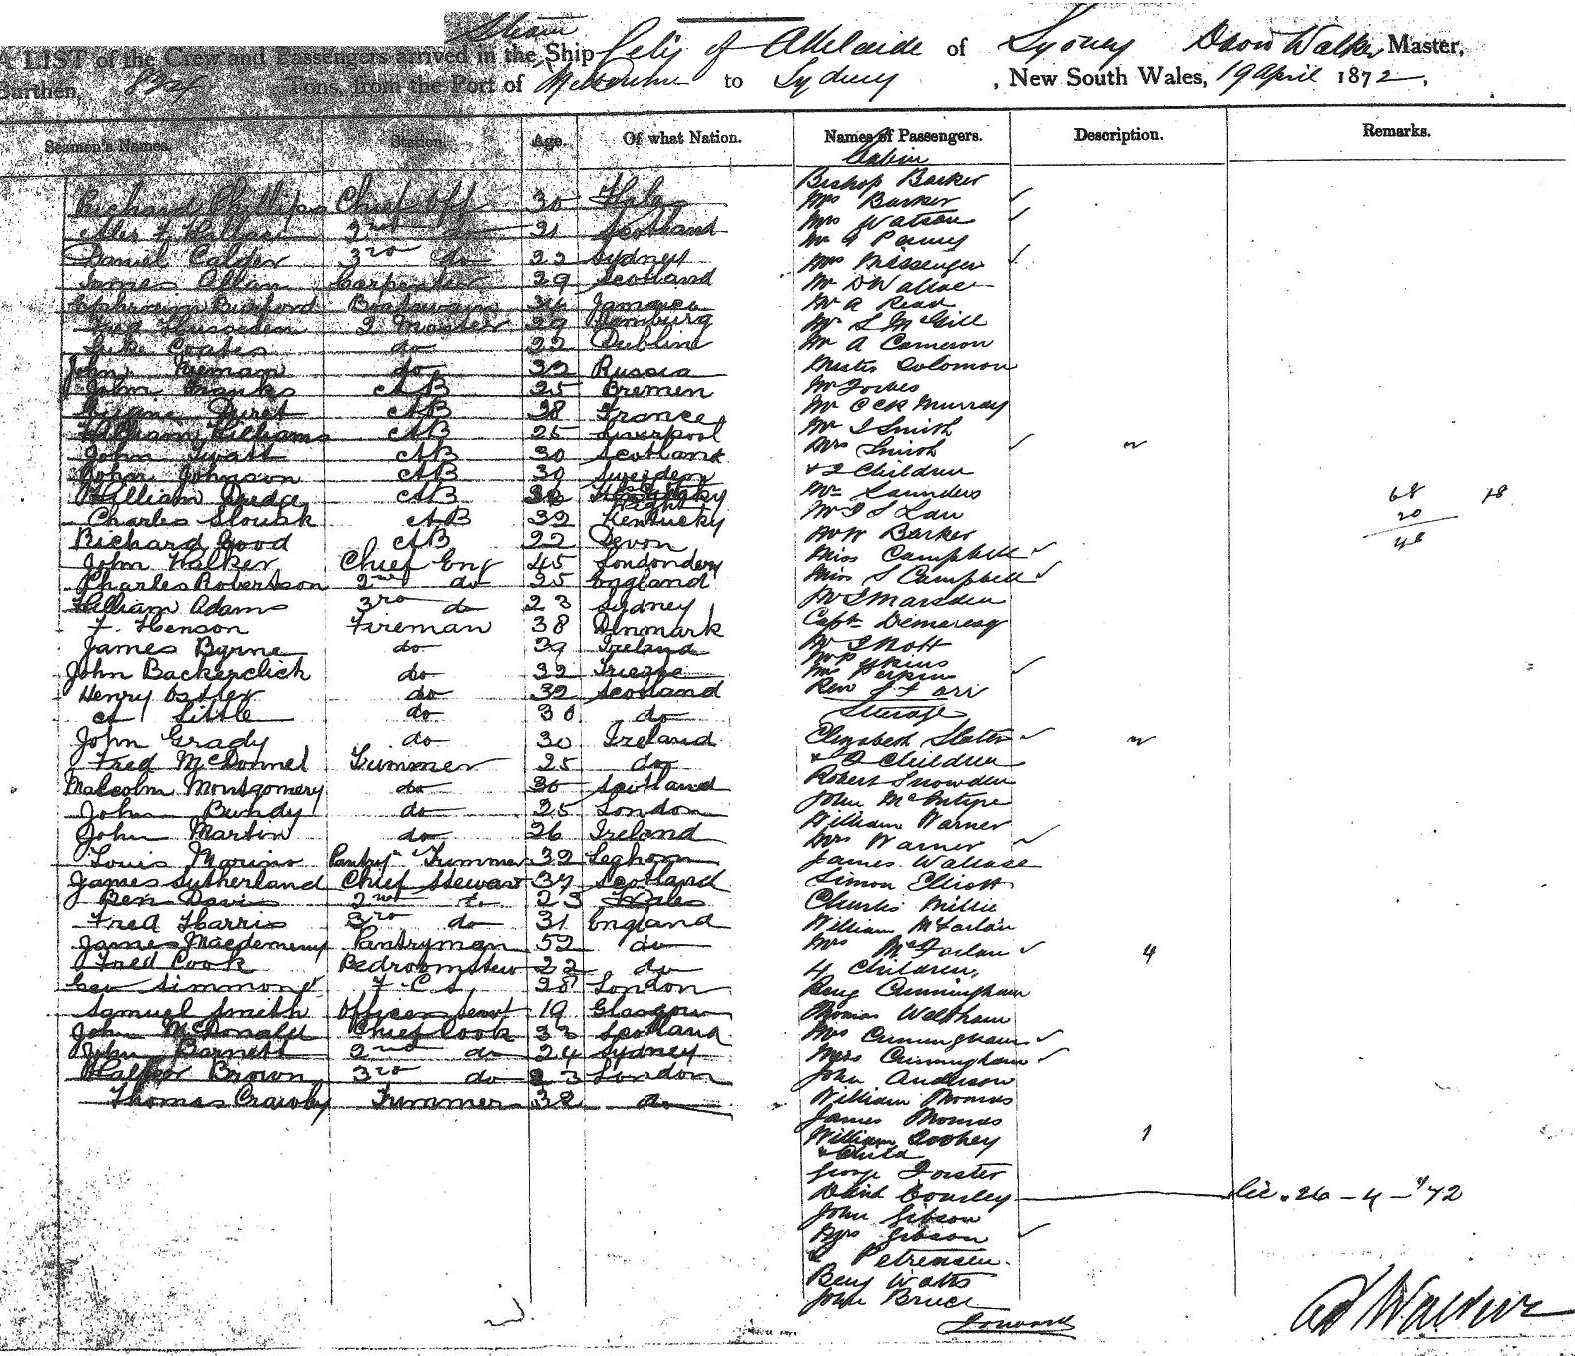 Steam
A LIST of the Crew and Passengers arrived in the Ship City of Adelaide of Sydney David Walker Master,
Burthen, 824 Tons from the Port of Melbourne to Sydney, New South Wales, 19 April 1872.
Seamen's Names. Station. Age. Of what Nation. Names of Passengers. Description. Remarks.
Cabin
Richard Phyllips Chief Off 30 Wales
2nd do 21 Scotland
Daniel Calder 3rd do 22 Sydney
James Allan Carpenter 29 Scotland
Burford Boatswain Jamaica
Fred 2 Master 29 Hamburg
Luke Coates do 22 Dublin
John Nieman do 32 Russia
John Franks AB 25 Bremen
AB 28 France
William Williams AB 25 Liverpool
John Swatt AB 30 Scotland
John Johnson AB 30 Sweden
William Dredge AB
Charles AB 32 Kentucky
Richard Good AB 22 Devon
John Walker Chief Eng 45 Londondery
Charles Robertson 2nd do 25 England
William Adams 3rd do 23 Sydney
F. Henson Fireman 38 Denmark
James Byrne do 39 Ireland
John Backerclick do 32 Trieste
Henry do 32 Scotland
A Little do 30 do
John Grady do 30 Ireland
Fred McDonnel Trimmer 25 do
Malcolm Montgomery do 30 Scotland
John Bundy do 25 London
John Martin do 26 Ireland
Louis Marino Pantry Trimmer 32 Leghorn
James Sutherland Chief Steward 37 Scotland
Ben Davis 2nd do 23 Wales
Fred Harris 3rd do 31 England
James Pantryman 52 do
Fred Cook Bedroom Stew 22 do
Geo Simmons F.C.S. 28 London
Samuel Smith Officers Servt 19 Glasgow
John McDonald Chief Cook 33 Scotland
John Barnett 2nd do 24 Sydney
Walter Brown 3rd do 23 London
Thomas Crawby Trimmer 32 do
Bishop Barker
Mrs Barker
Mrs Watson
Mr Penny
Mrs Messenger
Mr D Wallace
Mr A Read
Mr S McGill
Mr A Cameron
Master Solomon
Mr Forbes
Mr Murray
Mr J Smith
Mrs Smith
& 2 Children
Mr Saunders
Mr J S Law
Mr W Barker
Miss Campbell
Miss S Campbell
Mr J Marsden
Capt. Demerest
Mr J Nott
Mr Perkins
Mrs Perkins
Rev
Steerage
Elizabeth Slater
& 2 Children
Robert Snowden
John McIntyre
William Warner
Mrs Warner
James Wallace
Simon Elliott
Charles Millie
William McFarlan
Mrs McFarlan 4
4 Children,
Benj Cunningham
Thomas Waltham
Mrs Cunningham
Miss Cunningham
John Anderson
William Thomas
James Thomas
William Doohey 1
& Child
George Forster
David Bousley Lic. 26 - 4 - 72
John Gibson
Mrs Gibson
L Petrensen
Benj Watts
John Bruce
Forward
68 18
20
48